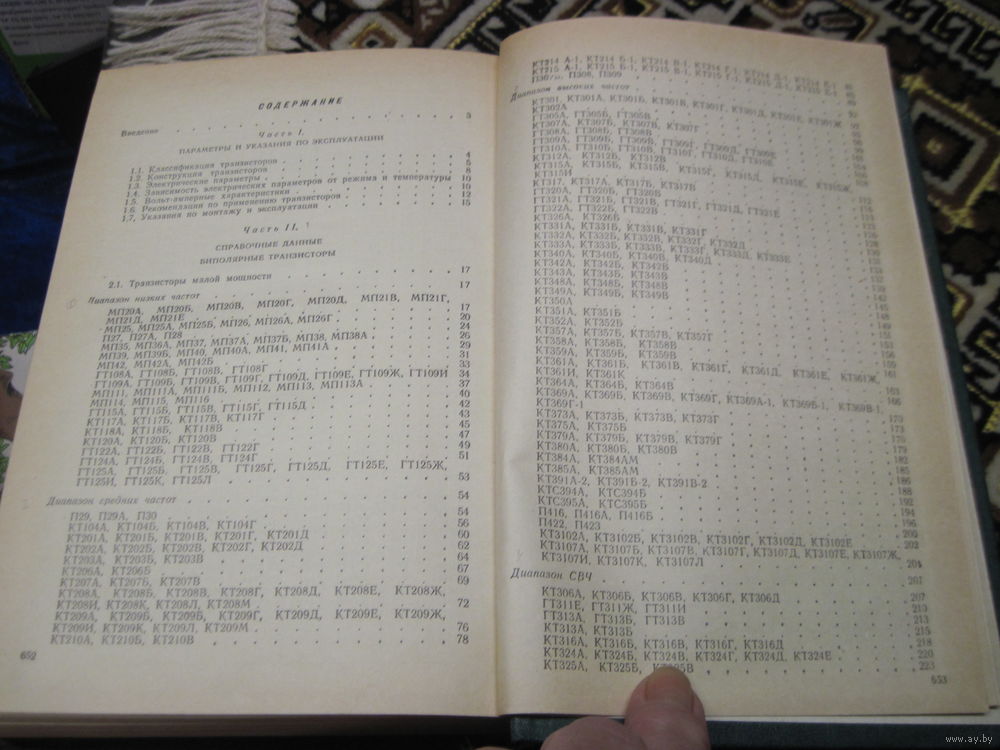 СОДЕРЖАНИЕ
Введение 3
Часть I.
ПАРАМЕТРЫ И УКАЗАНИЯ ПО ЭКСПЛУАТАЦИИ
1.1. Классификация транзисторов 4
1.2. Конструкция транзисторов 5
1.3. Электрические параметры 8
1.4. Зависимость электрических параметров от режима и температуры 10
1.5. Вольт-амперные характеристики 10
1.6. Рекомендации по применению транзисторов 12
1.7. Указания по монтажу и эксплуатации 15
Часть II.
СПРАВОЧНЫЕ ДАННЫЕ
БИПОЛЯРНЫЕ ТРАНЗИСТОРЫ
2.1. Транзисторы малой мощности 17
Диапазон низких частот 17
МП20А, МП20Б, МП20В, МП20Г, МП20Д, МП21В, МП21Г,
МП21Д, МП21Е 17
МП25, МП25А, МП25Б, МП26, МП26А, МП26Г 20
П27, П27А, П28 24
МП35, МП36А, МП37, МП37А, МП37Б, МП38, МП38А 26
МП39, МП39Б, МП40, МП40А, МП41, МП41А 29
МП42, МП42А, МП42Б 31
ГТ108А, ГТ108Б, ГТ108В, ГТ108Г 33
ГТ109А, ГТ109Б, ГТ109В, ГТ109Г, ГТ109Д, ГТ109Е, ГТ109Ж, ГТ109И 34
МП111, МП111А, МП111Б, МП112, МП113, МП113А 37
МП114, МП115, МП116 40
ГТ115А, ГТ115Б, ГТ115В, ГТ115Г, ГТ115Д 42
КТ117А, КТ117Б, КТ117В, КТ117Г 43
КТ118А, КТ118Б, КТ118В 45
КТ120А, КТ120Б, КТ120В 47
ГТ122А, ГТ122Б, ГТ122В, ГТ122Г 49
ГТ124А, ГТ124Б, ГТ124В, ГТ124Г 51
ГТ125А, ГТ125Б, ГТ125В, ГТ125Г, ГТ125Д, ГТ125Е, ГТ125Ж,
ГТ125И, ГТ125К, ГТ125Л 53
Диапазон средних частот 54
П29, П29А, П30 54
КТ104А, КТ104Б, КТ104В, КТ104Г 56
КТ201А, КТ201Б, КТ201В, КТ201Г, КТ201Д 60
КТ202А, КТ202Б, КТ202В, КТ202Г, КТ202Д 62
КТ203А, КТ203Б, КТ203В 64
КТ206А, КТ206Б 67
КТ207А, КТ207Б, КТ207В 69
КТ208А, КТ208Б, КТ208В, КТ208Г, КТ208Д, КТ208Е, КТ208Ж,
КТ208И, КТ208К, КТ208Л, КТ208М 72
КТ209А, КТ209Б, КТ209В, КТ209Г, КТ209Д, КТ209Е, КТ209Ж,
КТ209И, КТ209К, КТ209Л, КТ209М 76
КТ210А, КТ210Б, КТ210В 78
652
КТ214 А-1, КТ214 Б-1, КТ214 В-1, КТ214 Г-1, КТ214 Д-1, КТ214 Е-1
КТ215 А-1, КТ215 Б-1, КТ215 В-1, КТ215 Г-1, КТ215 Д-1, КТ215 Е-1
П308, П309
Диапазон высоких частот
КТ301, КТ301А, КТ301Б, КТ301В, КТ301Г, КТ301Д, КТ301Е, КТ301Ж
КТ302А
ГТ305А, ГТ305Б, ГТ305В
КТ307А, КТ307Б, КТ307В, КТ307Г
ГТ308А, ГТ308Б, ГТ308В
ГТ309А, ГТ309Б, ГТ309В, ГТ309Г, ГТ309Д, ГТ309Е
ГТ310А, ГТ310Б, ГТ310В, ГТ310Г, ГТ310Д, ГТ310Е
КТ312А, КТ312Б, КТ312В
КТ315А, КТ315Б, КТ315В, КТ315Г, КТ315Д, КТ315Е, КТ315Ж,
КТ315И
КТ317, КТ317А, КТ317Б, КТ317В
ГТ320А, ГТ320Б, ГТ320В
ГТ321А, ГТ321Б, ГТ321В, ГТ321Г, ГТ321Д, ГТ321Е
ГТ322А, ГТ322Б, ГТ322В
КТ326А, КТ326Б
КТ331А, КТ331Б, КТ331В, КТ331Г
КТ332А, КТ332Б, КТ332В, КТ332Г, КТ332Д
КТ333А, КТ333Б, КТ333В, КТ333Г, КТ333Д, КТ333Е
КТ340А, КТ340Б, КТ340В, КТ340Д
КТ342А, КТ342Б, КТ342В
КТ343А, КТ343Б, КТ343В
КТ348А, КТ348Б, КТ348В
КТ349А, КТ349Б, КТ349В
КТ350А
КТ351А, КТ351Б
КТ352А, КТ352Б
КТ357А, КТ357Б, КТ357В, КТ357Г
КТ358А, КТ358Б, КТ358В
КТ359А, КТ359Б, КТ359В
КТ361А, КТ361Б, КТ361В, КТ361Г, КТ361Д, КТ361Е, КТ361Ж,
КТ361И, КТ361К
КТ364А, КТ364Б, КТ364В
КТ369А, КТ369Б, КТ369В, КТ369Г, КТ369А-1, КТ369Б-1, КТ369В-1,
КТ369Г-1
КТ373А, КТ373Б, КТ373В, КТ373Г
КТ375А, КТ375Б
КТ379А, КТ379Б, КТ379В, КТ379Г
КТ380А, КТ380Б, КТ380В 179
КТ384А, КТ384АМ 182
КТ385А, КТ385АМ 185
КТ391А-2, КТ391Б-2, КТ391В-2 186
КТС394А, КТС394Б 188
КТС395А, КТС395Б 192
П416, П416А, П416Б 194
П422, П423 196
КТ3102А, КТ3102Б, КТ3102В, КТ3102Г, КТ3102Д, КТ3102Е 200
КТ3107А, КТ3107Б, КТ3107В, КТ3107Г, КТ3107Д, КТ3107Е, КТ3107Ж, 202
КТ3107И, КТ3107К, КТ3107Л 204
Диапазон СВЧ 207
КТ306А, КТ306Б, КТ306В, КТ306Г, КТ306Д 207
ГТ311Е, ГТ311Ж, ГТ311И 210
ГТ313А, ГТ313Б, ГТ313В 213
КТ313А, КТ313Б 215
КТ316А, КТ316Б, КТ316В, КТ316Г, КТ316Д 218
КТ324А, КТ324Б, КТ324В, КТ324Г, КТ324Д, КТ324Е 220
КТ325А, КТ325Б, КТ325В 223
653
www.ay.by